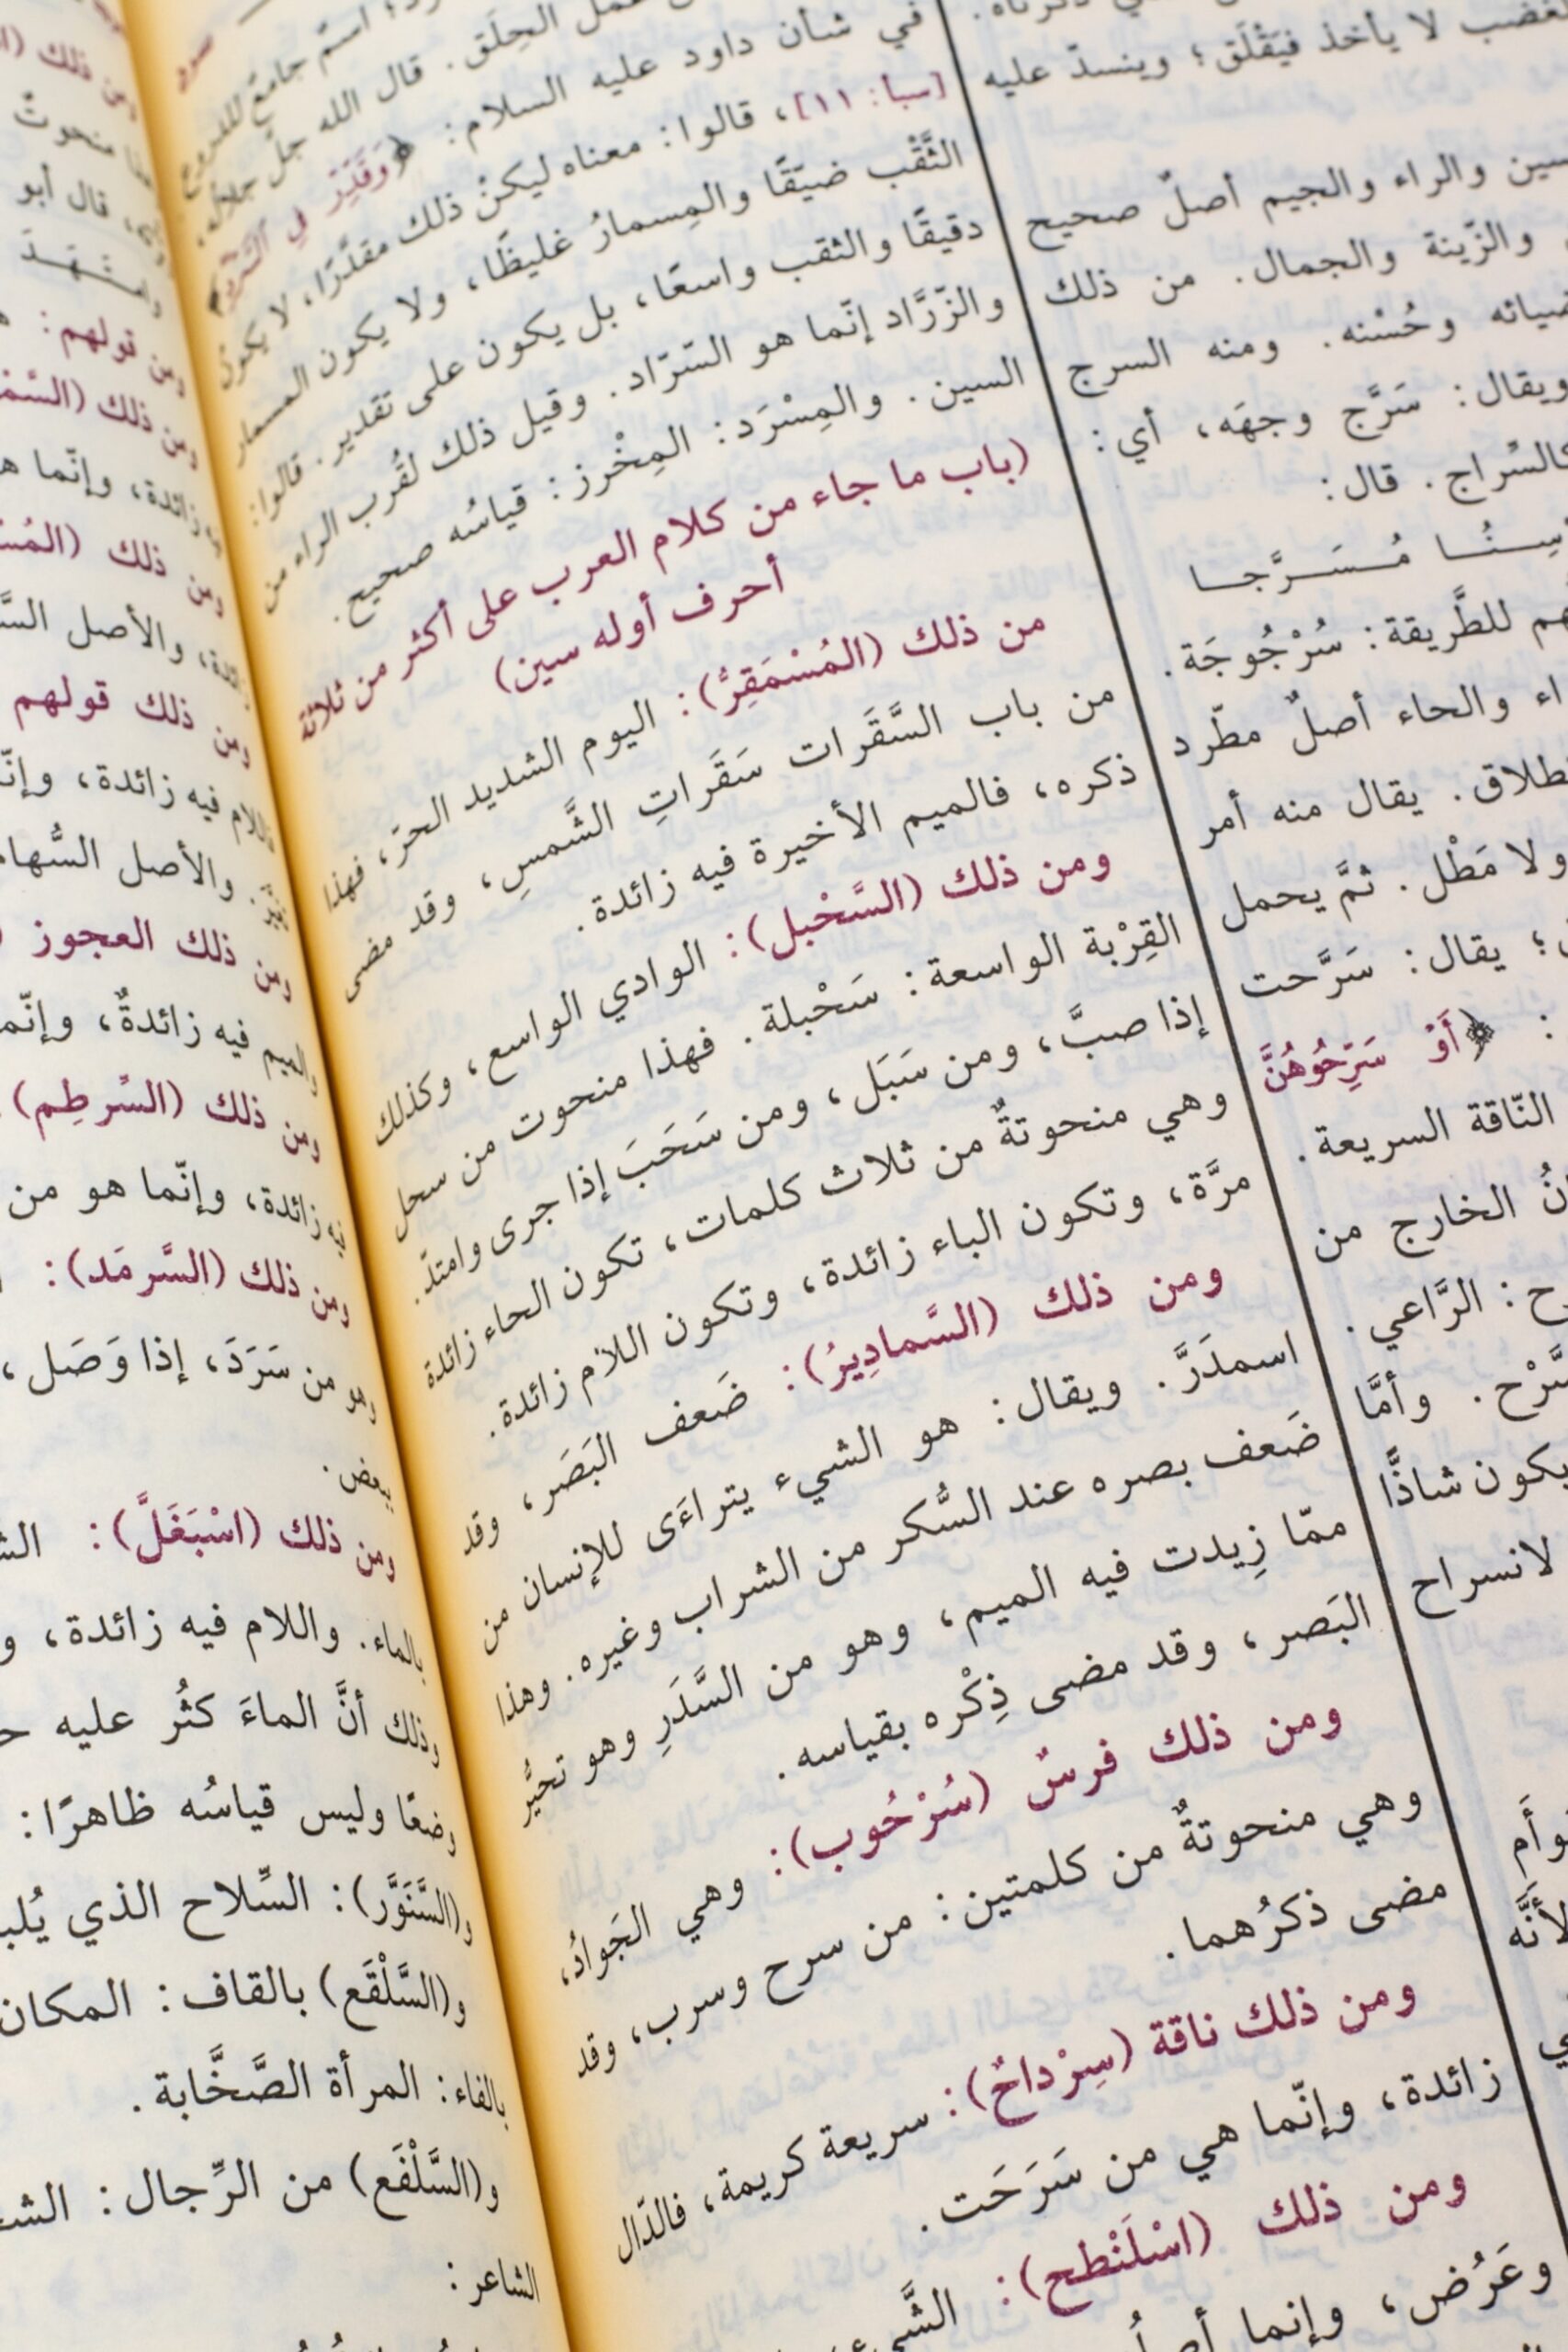 لغضب لا يأخذ فيَقْلَق؛ وينسدّ عليه
سين والراء والجيم أصلٌ صحيح
والزّينة والجمال. من ذلك
ضيائه وحُسْنه. ومنه السرج
ويقال: سَرَّج وجهَه، أي:
كالسِّراج. قال:
مُسَرَّجا
هم للطَّريقة: سُرْجُوجَة.
راء والحاء أصلٌ مطّرد
يقال منه أمر
ولا مَطْل. ثمَّ يحمل
يقال: سَرَّحت
: ﴿أَوْ سَرِّحُوهُنَّ
النّاقة السريعة.
الخارج من
ح: الرَّاعي.
سَّرْح. وأمَّا
يكون شاذًّا
لانسراح
عمل الحِلَق. قال الله جلّ جلاله،
في شأن داود عليه السلام: ﴿وَقَدِّرْ فِي السَّرْدِ﴾
[سبأ: ١١]، قالوا: معناه ليكنْ ذلك مقدَّرًا، لا يكون
الثَّقْب ضيّقًا والمِسمارُ غليظًا، ولا يكون المسمار
دقيقًا والثقب واسعًا، بل يكون على تقدير. قالوا:
والزّرَّاد إنّما هو السّرّاد. وقيل ذلك لقُرب الراء من
السين. والمِسْرَد: المِخْرز: قياسُه صحيح.
(باب ما جاء من كلام العرب على أكثر من ثلاثة
أحرف أوله سين)
من ذلك (المُسْمَقِرُّ): اليوم الشديد الحرّ، فهذا
من باب السَّقَرات سَقَراتِ الشَّمسِ، وقد مضى
ذكره، فالميم الأخيرة فيه زائدة.
ومن ذلك (السَّحْبل): الوادي الواسع، وكذلك
القِرْبة الواسعة: سَحْبلة. فهذا منحوت من سحل
إذا صبَّ، ومن سَبَل، ومن سَحَبَ إذا جرى وامتدّ.
وهي منحوتةٌ من ثلاث كلمات، تكون الحاء زائدة
مرَّة، وتكون الباء زائدة، وتكون اللام زائدة.
ومن ذلك (السَّمادِيرُ): ضَعف البَصَر، وقد
اسمدَرَّ. ويقال: هو الشيء يتراءَى للإنسان من
ضَعف بصره عند السُّكر من الشراب وغيره. وهذا
ممّا زِيدت فيه الميم، وهو من السَّدَرِ وهو تحيُّر
البَصر، وقد مضى ذِكْره بقياسه.
ومن ذلك فرسٌ (سُرْحُوب): وهي الجَوادُ،
وهي منحوتةٌ من كلمتين: من سرح وسرب، وقد
مضى ذكرُهما.
ومن ذلك ناقة (سِرْداحٌ): سريعة كريمة، فالدّال
زائدة، وإنّما هي من سَرَحَت.
ومن ذلك (اسْلَنْطح): الشَّيء
وعَرُض، وإنما
قال أبو
ومن قولهم:
ومن ذلك
زائدة، وإنّما
ومن ذلك
والأصل
ومن ذلك قولهم
فاللام فيه زائدة،
والأصل
ومن ذلك العجوز
والميم فيه زائدةٌ، وإنّما
ومن ذلك (السِّرطِم)
فيه زائدة، وإنّما هو من
ومن ذلك (السَّرمَد):
وهو من سَرَدَ، إذا وَصَل،
ببعض.
ومن ذلك (اسْبَغَلَّ):
بالماء. واللام فيه زائدة،
وذلك أنَّ الماءَ كثُر عليه
وضعًا وليس قياسُه ظاهرًا:
و(السَّنَوَّر): السِّلاح الذي
و(السَّلْقَع) بالقاف: المكان
بالفاء: المرأة الصَّخَّابة.
و(السَّلْفَع) من الرِّجال:
الشاعر: